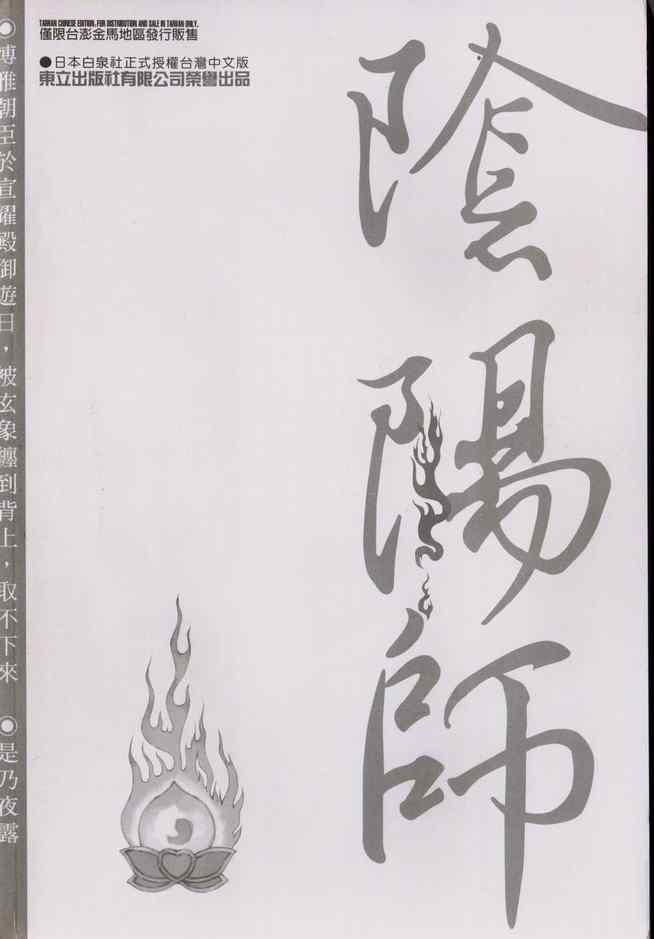 TAIWAN CHINESE EDITION, FOR DISTRIBUTION AND SALE IN TAIWAN ONLY.
僅限台澎金馬地區發行販售
●日本白泉社正式授權台灣中文版
東立出版社有限公司榮譽出品
陰陽師
◉博雅朝臣於宣耀殿御遊日，被玄象纏到背上，取不下來 ◉是乃夜露